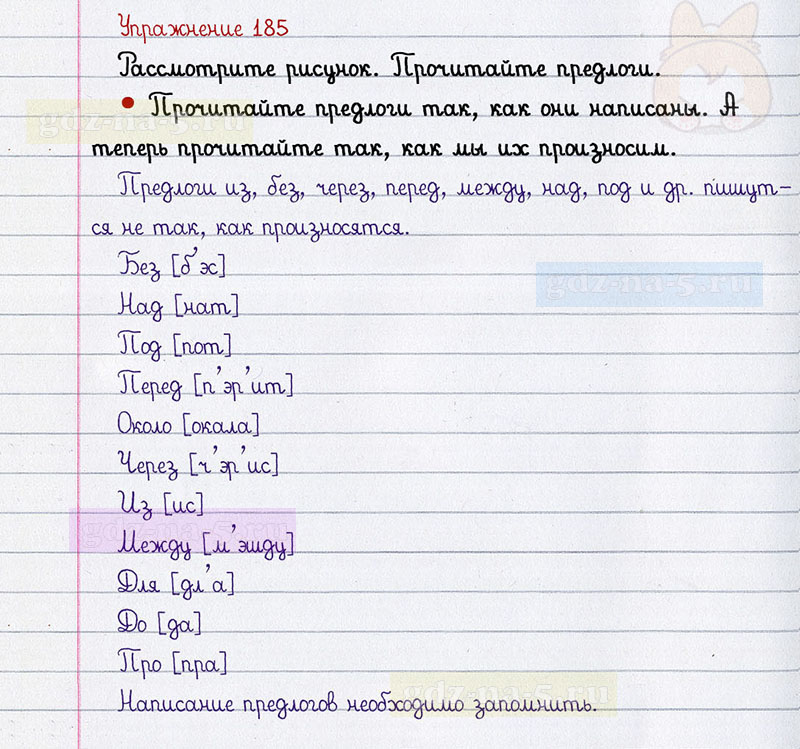 Упражнение 185
Рассмотрите рисунок. Прочитайте предлоги.
• Прочитайте предлоги так, как они написаны. А
теперь прочитайте так, как мы их произносим.
gdz-na-5.ru
Предлоги из, без, через, перед, между, над, под и др. пишут-
ся не так, как произносятся.
Без [б’эс]
gdz-na-5.ru
Над [нат]
Под [пот]
Перед [п’эр’ит]
Около [окала]
Через [ч’эр’ис]
Из [ис]
gdz-na-5.ru
Между [м’эшду]
Для [дл’а]
До [да]
Про [пра]
gdz-na-5.ru
Написание предлогов необходимо запомнить.